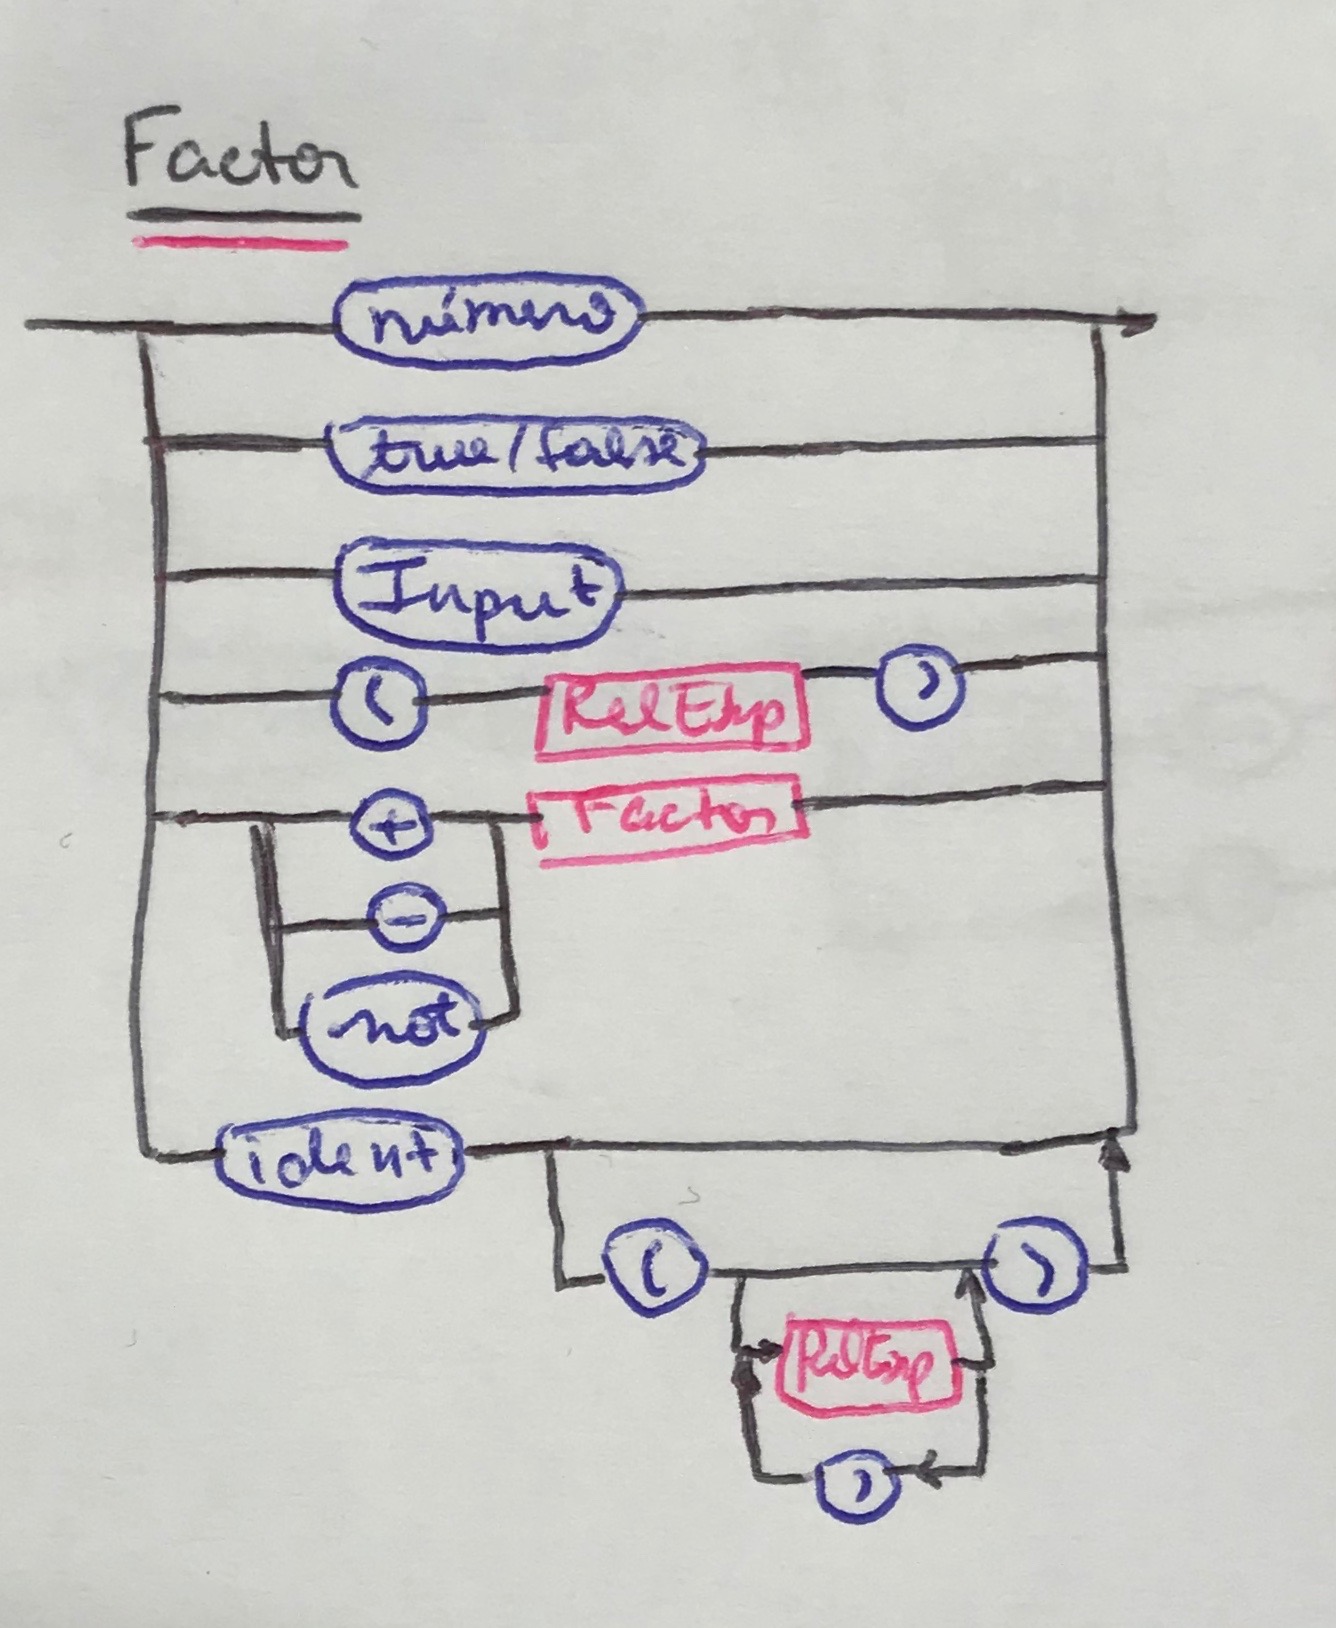 Factor
número
true/false
Input
( RelExp )
+ Factor
-
not
ident
( )
RelExp
,